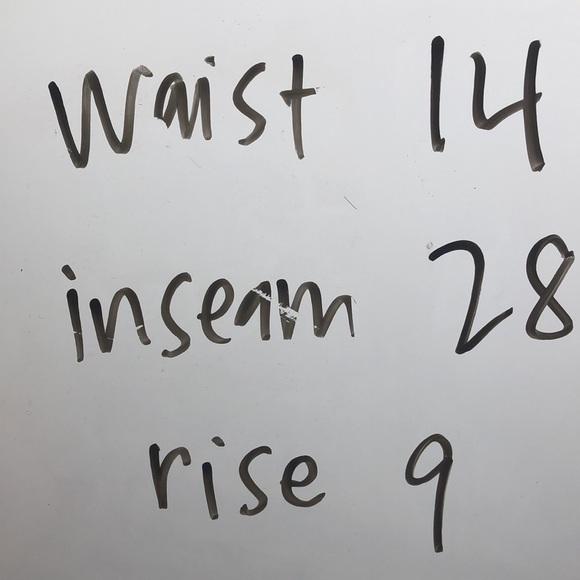 Waist 14
inseam 28
rise 9